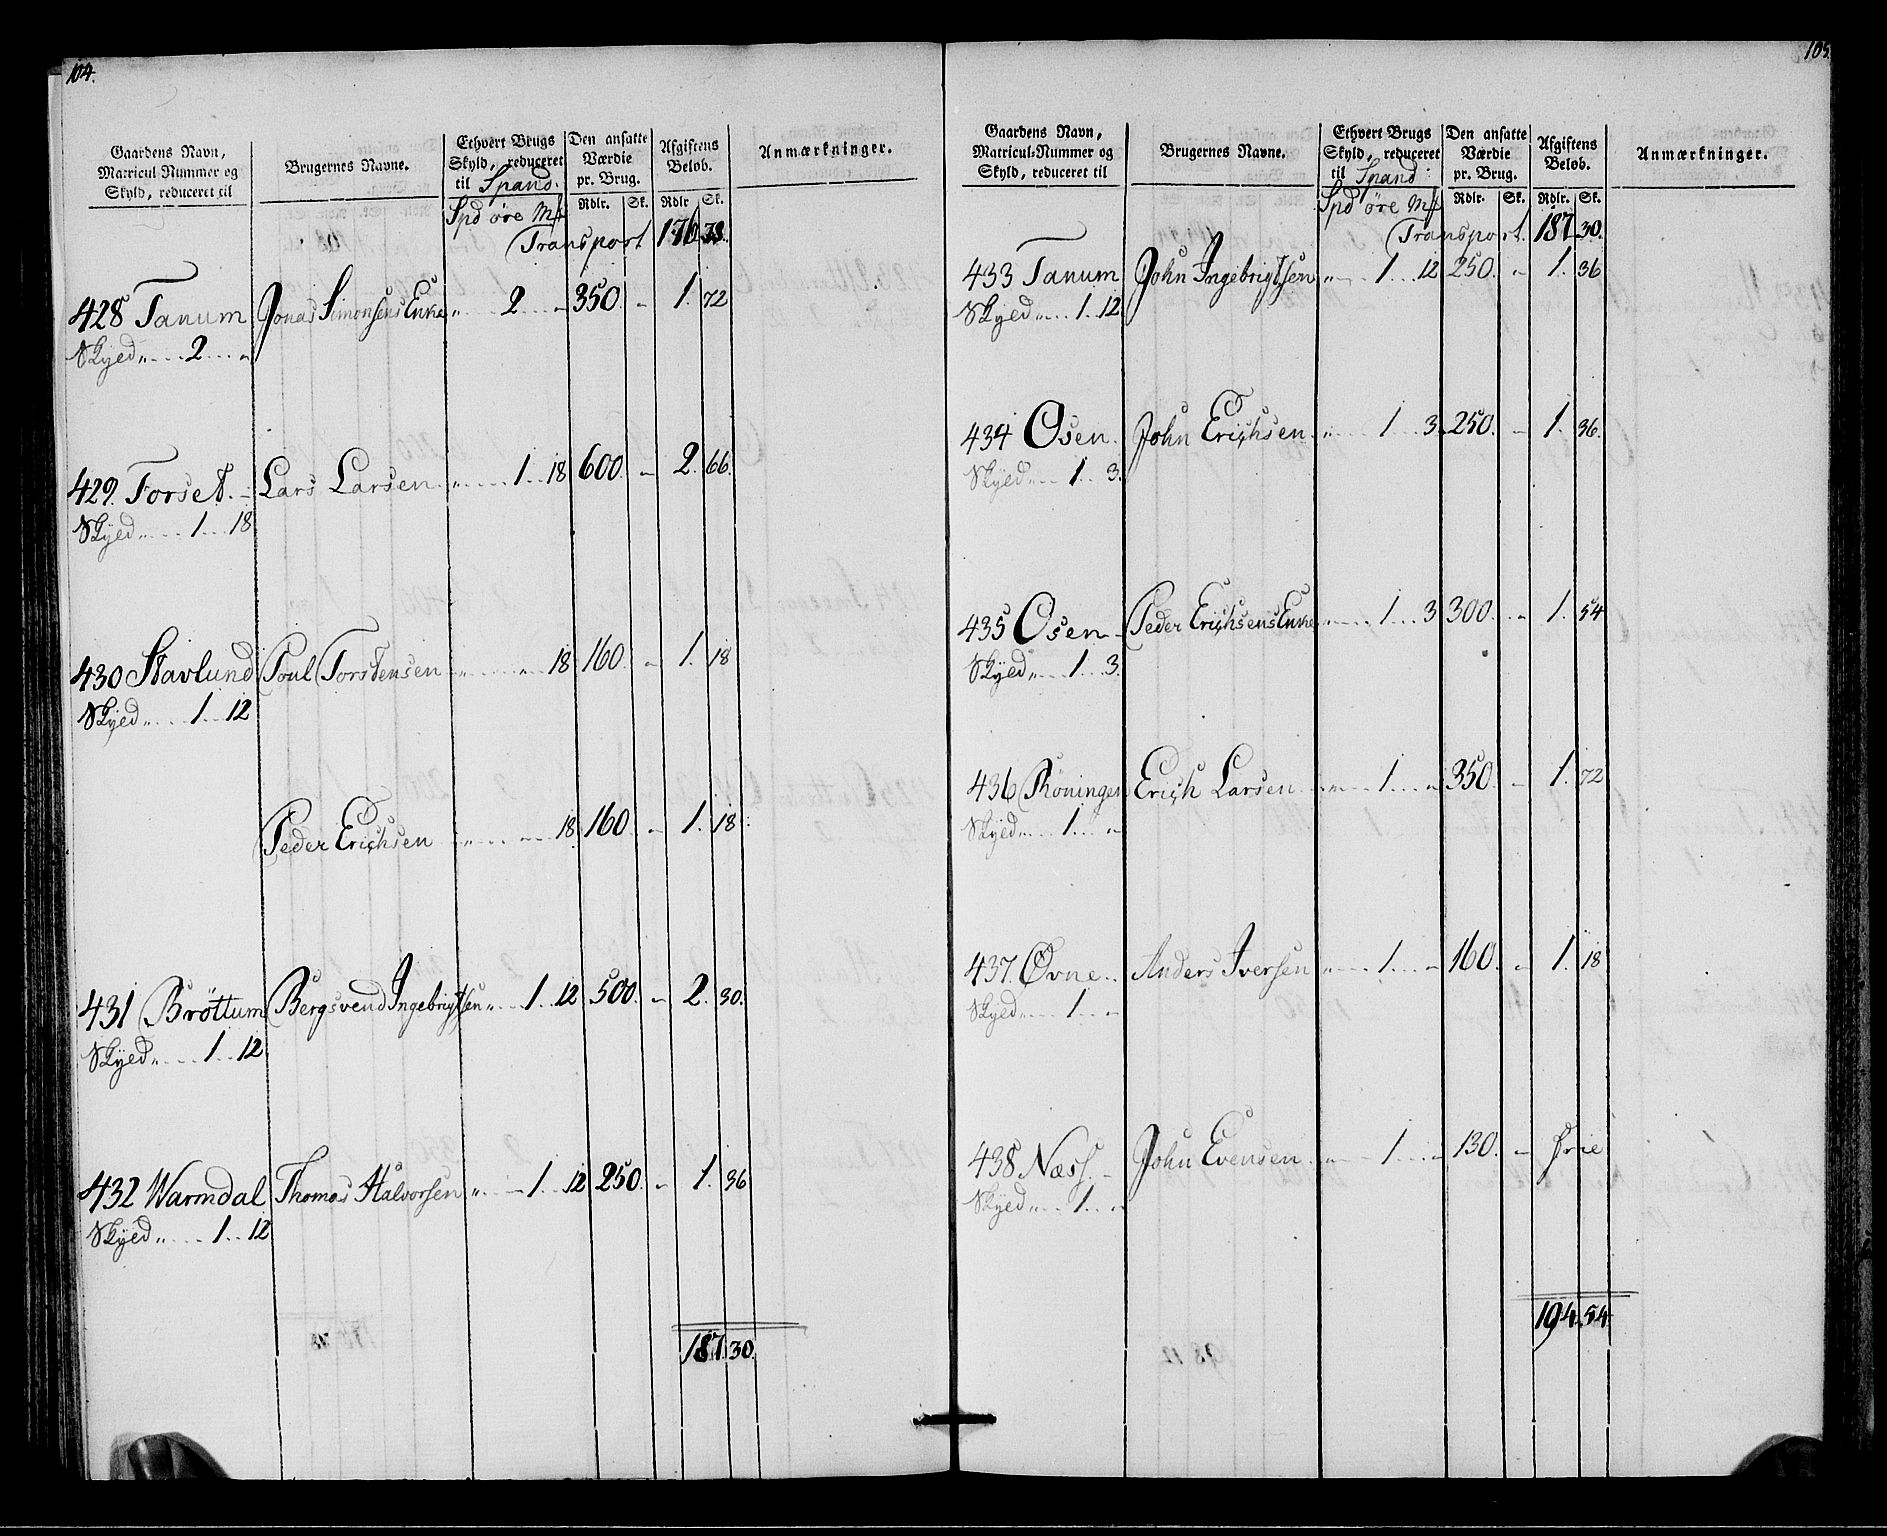 104.
Gaardens Navn, Matricul Nummer og Skyld, reduceret til | Brugernes Navne. | Ethvert Brugs Skyld, reduceret til Spand. | Den ansatte Værdie pr. Brug. | Afgiftens Beløb. | Anmærkninger.
Spd öre Mk | Rdlr. Sk. | Rdlr Sk.
Transport 176
428 Tanum Jonas Simonsens Enke „ 2 „ 350. „ 1. 72
Skyed „ 2 „
429. Forset. Lars Larsen „ 1 18 600. „ 2. 66.
Skyed „ 1 18
430 Stavlund Poul Torstensen „ „ 18 160. „ 1. 18
Skyed „ 1 12
Peder Erichsen „ „ 18 160. „ 1. 18
431 Bröttum Bergsvend Ingebrigtsen „ 1 12 500. „ 2. 30.
Skyed „ 1 12
432 Warmdal Thomas Halvorsen „ 1 12 250. „ 1. 36
Skyed „ 1 12
187. 30.
105.
Gaardens Navn, Matricul-Nummer og Skyld, reduceret til | Brugernes Navne. | Ethvert Brugs Skyld, reduceret til Spand | Den ansatte Værdie pr. Brug. | Afgiftens Beløb. | Anmærkninger.
Spd öre Mk | Rdlr. Sk. | Rdlr. Sk.
Transport. 187 30.
433 Tanum John Ingebrigtsen „ 1 12 250. „ 1. 36
Skyed „ 1 12.
434 Osen. John Erichsen „ 1 3 250. „ 1. 36.
Skyed „ 1 3.
435 Osen Peder Erichsens Enke „ 1 3 300. „ 1. 54
Skyed „ 1 3.
436 Röningen Erich Larsen „ 1 „ 350. „ 1. 72
Skyed „ 1 „
437. Övne. Anders Iversen „ 1 „ 160. „ 1. 18
Skyed „ 1 „
438 Næss. John Evensen „ 1 „ 130. „ frie
Skyed „ 1 „
194. 54